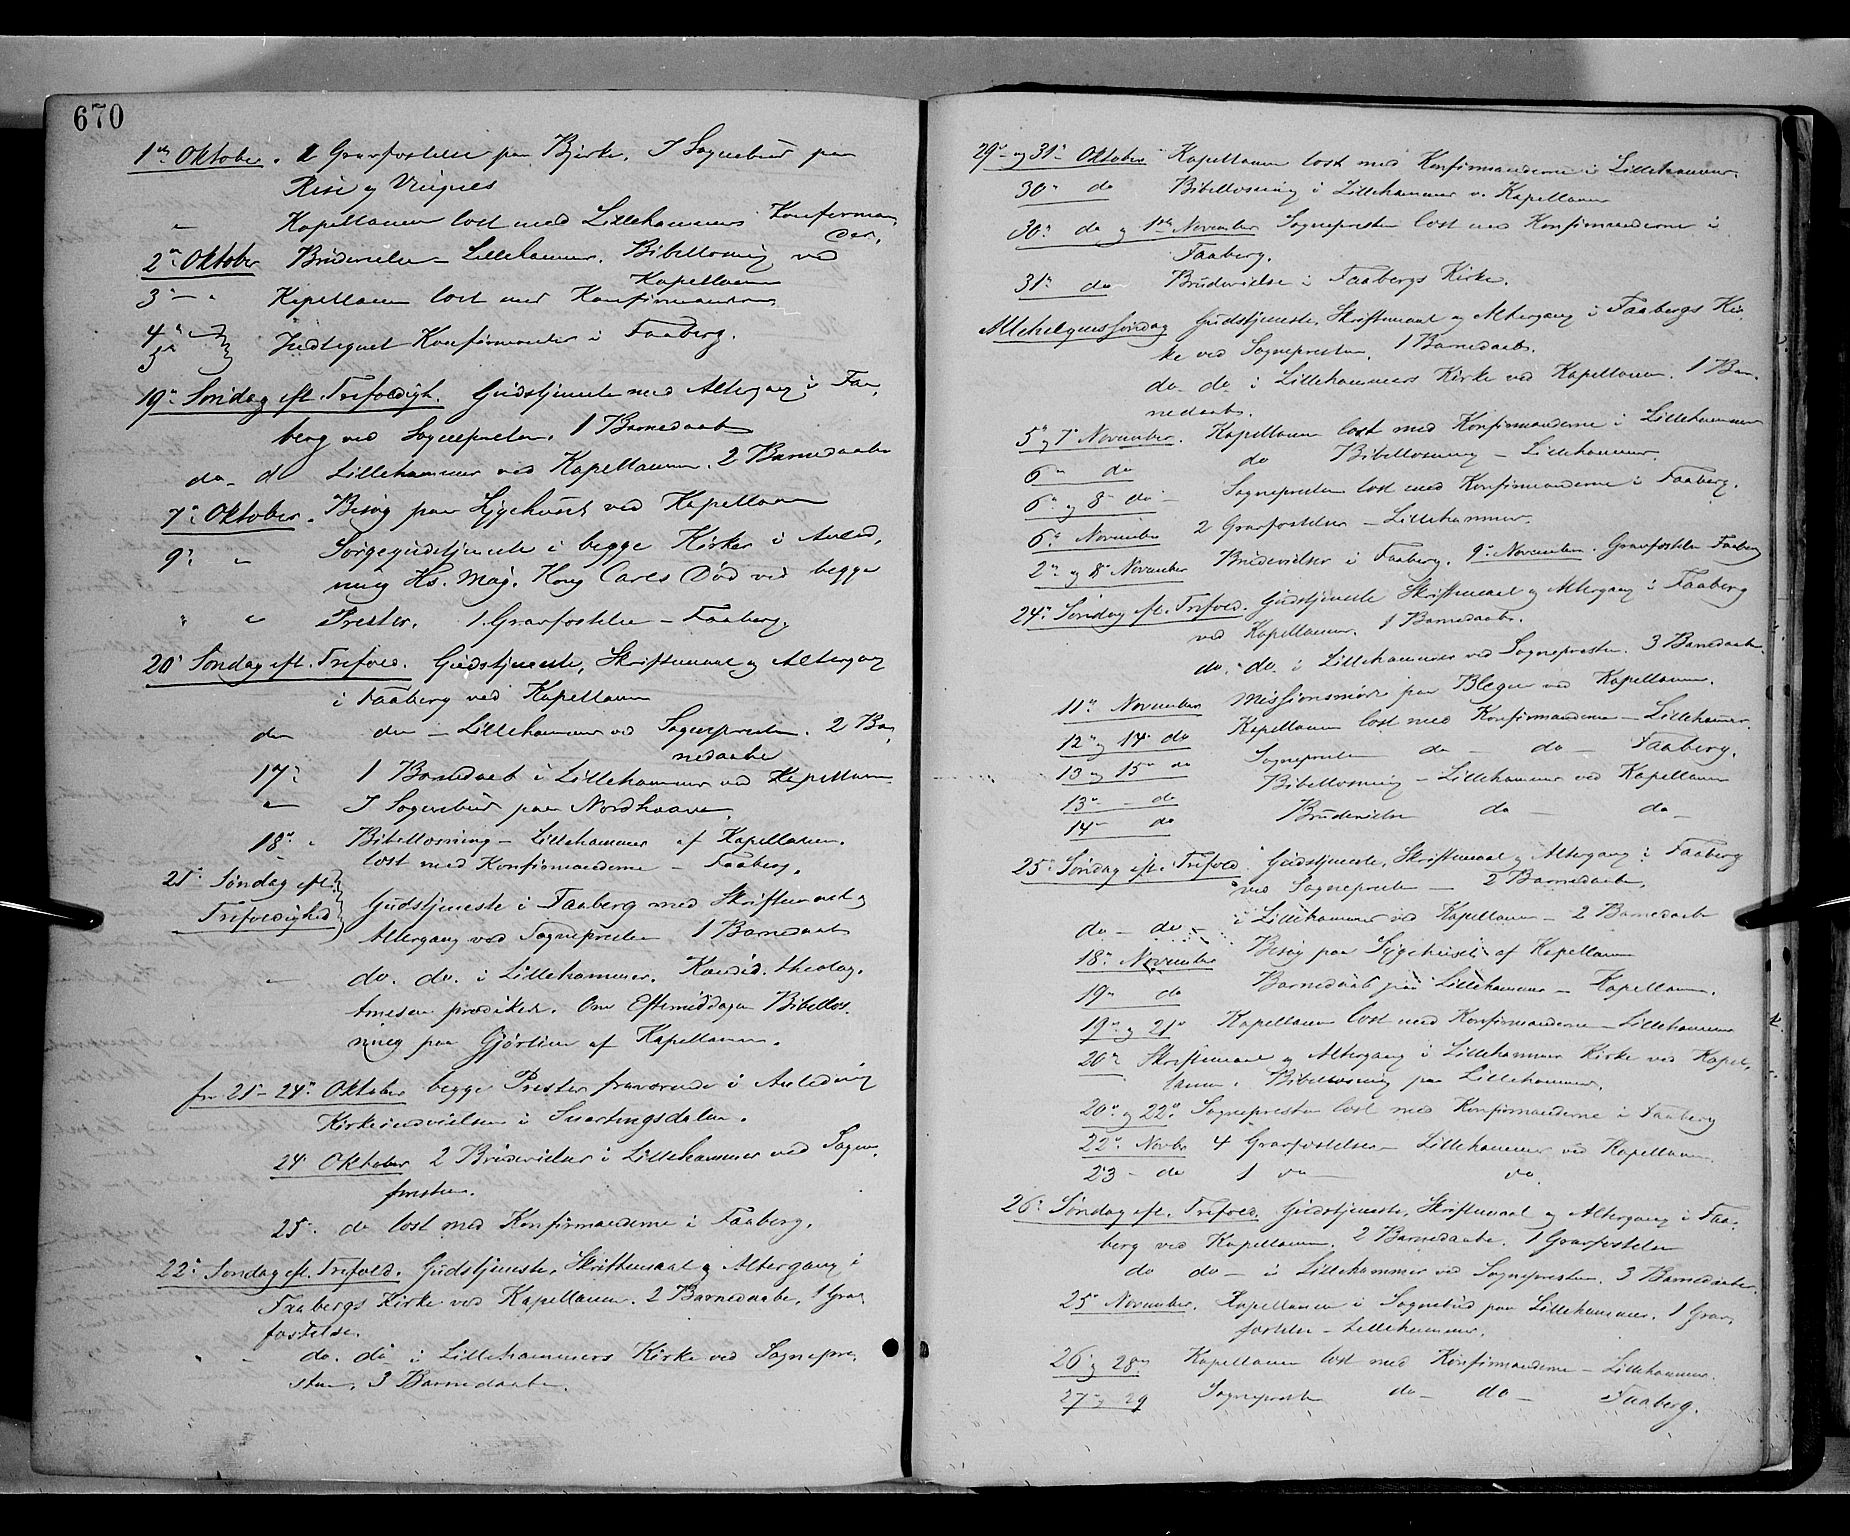 670
1ste Oktober. 2 Gravfæstelse paa Bjerke. I Sognebud paa
Rise og Vingnes
" Kapellanen læst med Lillehammers Konfirman-
der.
2den Oktober Brudevielse – Lillehammer. Bibellæsning ved
Kapellanen
3 – " Kapellanen læst med Konfirmanderne
4de
5te Indtegnet Konfirmanter i Faaberg.
19de Søndag eft. Trefoldigh. Gudstjeneste med Altergang i Faa-
berg ved Sognepresten. 1 Barnedaab
do – do Lillehammer ved Kapellanen. 2 Barnedaabe
7de Oktober. Besøg paa Sygehuset ved Kapellanen
9de " Sørgegudstjeneste i begge Kirker i Anled-
ning Hs. Maj. Kong Carls Død ved begge
" " Prester. 1 Gravfæstelse – Faaberg.
20de Søndag eft. Trefold. Gudstjeneste, Skriftemaal og Altergang
i Faaberg ved Kapellanen
do do – Lillehammer ved Sognepresten. 2 Bar-
nedaabe
17de 1 Barnedaab i Lillehammer ved Kapellanen
" I Sognebud paa Nordhaave.
18de " Bibellæsning – Lillehammer af Kapellanen.
læst med Konfirmanderne – Faaberg.
21de Søndag eft.
Trefoldighed Gudstjeneste i Faaberg med Skriftemaal og
Altergang ved Sognepresten 1 Barnedaab
" do. do. i Lillehammer. Kandid. theolog.
Arnesen prædikede. Om Eftermiddagen Bibellæs-
ning paa Gjørlien af Kapellanen.
fra 21de – 24de Oktober begge Prester fraværende i Anledning
Kirkeindvielsen i Snertingsdalen.
24de Oktober 2 Brudevielser i Lillehammer ved Sogne-
presten.
25de do læst med Konfirmanderne i Faaberg.
22de Søndag eft. Trefold. Gudstjeneste, Skriftemaal og Altergang i
Faabergs Kirke ved Kapellanen. 2 Barnedaabe, 1 Grav-
fæstelse.
" " do. do – i Lillehammers Kirke ved Sognepre-
sten, 3 Barnedaabe.
29de og 31te Oktober Kapellanen læst med Konfirmanderne i Lillehammer.
30te do Bibellæsning i Lillehammer v. Kapellanen
30te do og 1ste November Sognepresten læst med Konfirmanderne i
Faaberg.
31te do Brudevielse i Faabergs Kirke.
Allehelgenssøndag Gudstjeneste, Skriftemaal og Altergang i Faabergs Kir-
ke ved Sognepresten. 1 Barnedaab.
do – do i Lillehammers Kirke ved Kapellanen. 1 Bar-
nedaab.
5te og 7de November. Kapellanen læst med Konfirmanderne i Lillehammer
6te do do Bibellæsning – Lillehammer.
6te og 8de do – Sognepresten læst med Konfirmanderne i Faaberg.
6te November 2 Gravfæstelser – Lillehammer.
2den og 8de November Brudevielser i Faaberg. 9de November. Gravfæstelse Faaberg
24de Søndag eft. Trefold. Gudstjeneste Skriftemaal og Altergang i Faaberg
ved Kapellanen. 1 Barnedaab.
do. do. i Lillehammer ved Sognepresten. 3 Barnedaabe.
11te November Missionsmøde paa Bleger ved Kapellanen.
12te og 14de do Kapellanen læst med Konfirmanderne – Lillehammer.
13 og 15de do Sognepresten do – do – Faaberg.
13de – do Bibellæsning – Lillehammer ved Kapellanen
14de – do Brudevielse do – do –
25de Søndag eft. Trefold. Gudstjeneste, Skriftemaal og Altergang i Faaberg
ved Sognepresten – 2 Barnedaabe.
do – do – i Lillehammer ved Kapellanen – 2 Barnedaabe
18de November Besøg paa Sygehuset af Kapellanen
19de do Barnedaab paa Lillehammer – Kapellanen.
19de og 21de Kapellanen læst med Konfirmanderne – Lillehammer
20de Skriftemaal og Altergang i Lillehammer Kirke ved Kapel-
lanen. Bibellæsning paa Lillehammer.
20de og 22de Sognepresten læst med Konfirmanderne i Faaberg
22de Novbr 4 Gravfæstelser – Lillehammer ved Kapellanen.
23 – do 1 do – do.
26de Søndag eft. Trefold. Gudstjeneste, Skriftemaal og Altergang i Faa-
berg ved Kapellanen. 2 Barnedaabe. 1 Gravfæstelse
do do – i Lillehammer ved Sognepresten. 3 Barnedaabe.
25de November. Kapellanen i Sognebud paa Lillehammer. 1 Grav-
fæstelse – Lillehammer.
26 og 28de Kapellanen læst med Konfirmanderne – Lillehammer.
27de og 29 Sognepresten do – do – Faaberg.